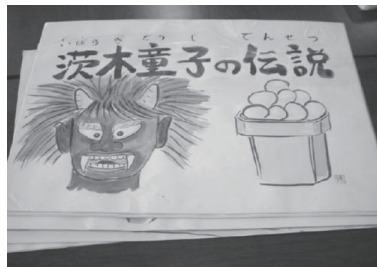 いばらき どうじ でんせつ
茨木童子の伝説